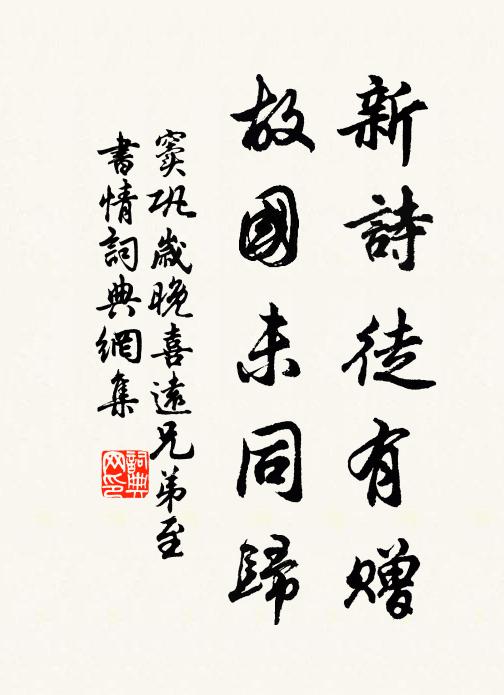 新詩徒有贈
故國未同歸
竇巩歲晚喜遠兄弟至
書情詞典網集
詞典
网印